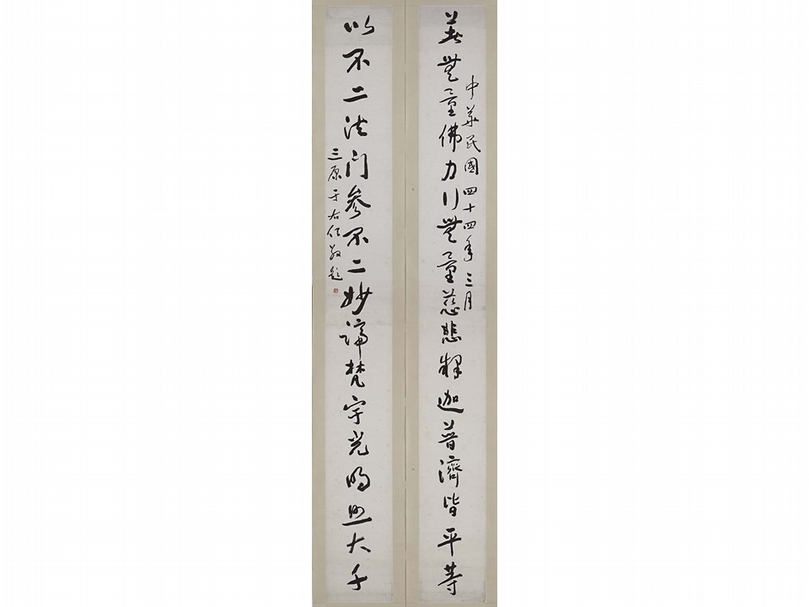 無量佛力行無量慈悲釋迦普濟皆平等
中華民國四十四年三月
以不二法門參不二妙諦梵宇光明照大千
三原于右任敬題